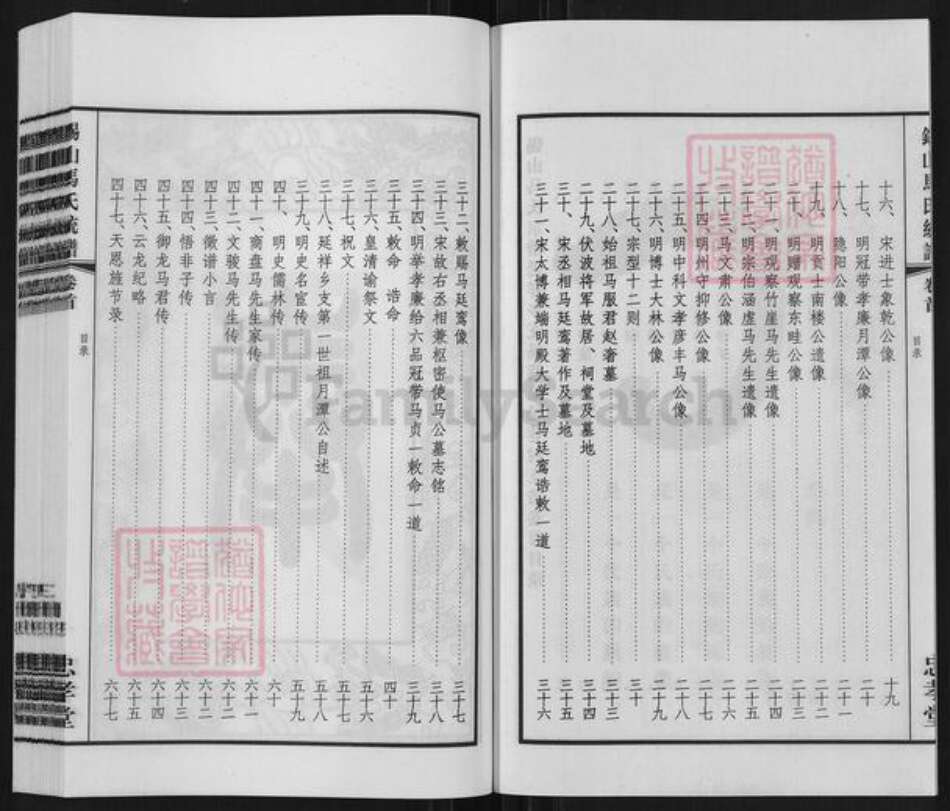 锡山馬氏統譜 卷首
目录
忠孝堂
十六、宋进士象乾公像 十九
十七、明冠带孝廉月潭公像 二十
十八、隐阳公像 二十一
十九、明贡士南楼公遗像 二十二
二十、明赠观察东畦公像 二十三
二十一、明观察竹崖马先生遗像 二十四
二十二、明宗伯涵虚马先生遗像 二十五
二十三、马文肃公像 二十六
二十四、明州守抑修公像 二十七
二十五、明中科文孝彦丰马公像 二十八
二十六、明博士大林公像 二十九
二十七、宗型十二则 三十
二十八、始祖马服君赵奢墓 三十三
二十九、伏波将军故居、祠堂及墓地 三十四
三十、宋丞相马廷鸾著作及墓地 三十五
三十一、宋太博兼端明殿大学士马廷鸾诰敕一道 三十六
三十二、敕赐马廷鸾像 三十七
三十三、宋故右丞相兼枢密使马公墓志铭 三十八
三十四、明举孝廉给六品冠带马贞一敕命一道 三十九
三十五、敕命 诰命 四十
三十六、皇清谕祭文 五十六
三十七、祝文 五十七
三十八、延祥乡支第一世祖月潭公自述 五十八
三十九、明史名宦传 五十九
四十、明史儒林传 六十
四十一、商盘马先生家传 六十一
四十二、文骏马先生传 六十二
四十三、徽谱小言 六十二
四十四、悟非子传 六十三
四十五、御龙马君传 六十四
四十六、云龙纪略 六十五
四十七、天恩旌节录 六十七
锡山馬氏統譜 卷首
目录
忠孝堂
FamilySearch